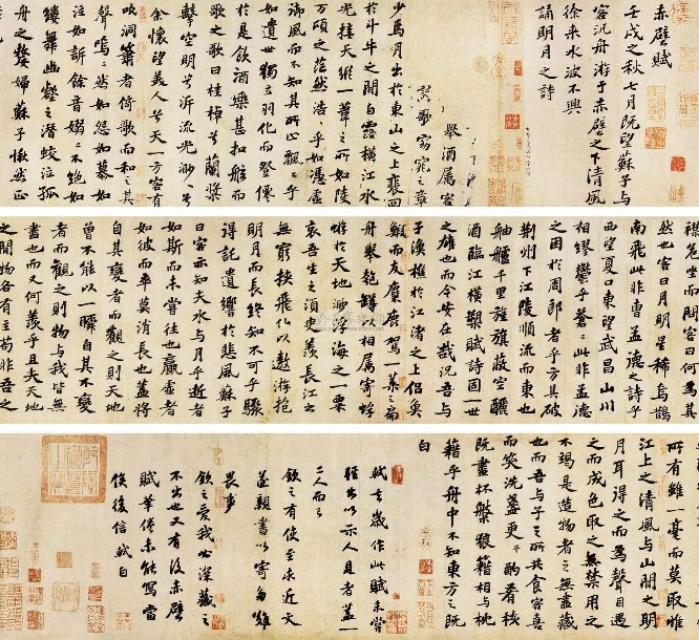 赤壁賦
壬戌之秋七月既望蘇子與
客泛舟游于赤壁之下清風
徐來水波不興
舉酒屬客
誦明月之詩
歌窈窕之章
少焉月出於東山之上裵回
於斗牛之間白露橫江水
光接天縱一葦之所如陵
万頃之茫然浩々乎如馮虛
御風而不知其所止飄々乎
如遺世獨立羽化而登僊
於是飲酒樂甚扣舷而
歌之歌曰桂棹兮蘭槳
擊空明兮泝流光渺々兮
余懷望美人兮天一方客有
吹洞簫者倚歌而和之其
聲嗚々然如怨如慕如
泣如訴餘音嫋々不絕如
縷舞幽壑之潛蛟泣孤
舟之嫠婦蘇子愀然正
襟危坐而問客曰何為其
然也客曰月明星稀烏鵲
南飛此非曹孟德之詩乎
西望夏口東望武昌山川
相繆鬱乎蒼々此非孟德
之困於周郎者乎方其破
荊州下江陵順流而東也
舳艫千里旌旗蔽空釃
酒臨江橫槊賦詩固一世
之雄也而今安在哉況吾與
子漁樵於江渚之上侶魚
鰕而友麋鹿駕一葉之扁
舟舉匏罇以相屬寄蜉
蝣於天地渺浮海之一粟
哀吾生之須臾羨長江之
無窮挾飛仙以遨游抱
明月而長終知不可乎驟
得託遺響於悲風蘇子
曰客亦知夫水與月乎逝者
如斯而未嘗往也贏虛者
如彼而卒莫消長也蓋將
自其變者而觀之則天地
曾不能以一瞬自其不變
者而觀之則物與我皆無
盡也而又何羨乎且夫天地
之間物各有主苟非吾之
所有雖一毫而莫取惟
江上之清風與山間之明
月耳得之而為聲目遇
之而成色取之無禁用之
不竭是造物者之無盡藏
也而吾與子之所共食客喜
而笑洗盞更酌肴核
既盡杯盤狼籍相與枕
藉乎舟中不知東方之既
白
軾去歲作此賦未嘗
輕出以示人見者蓋一
二人而已
欽之有使至求近文
遂親書以寄多難
畏事
欽之愛我必深藏之
不出也又有後赤壁
賦筆倦未能寫當
俟後信軾白